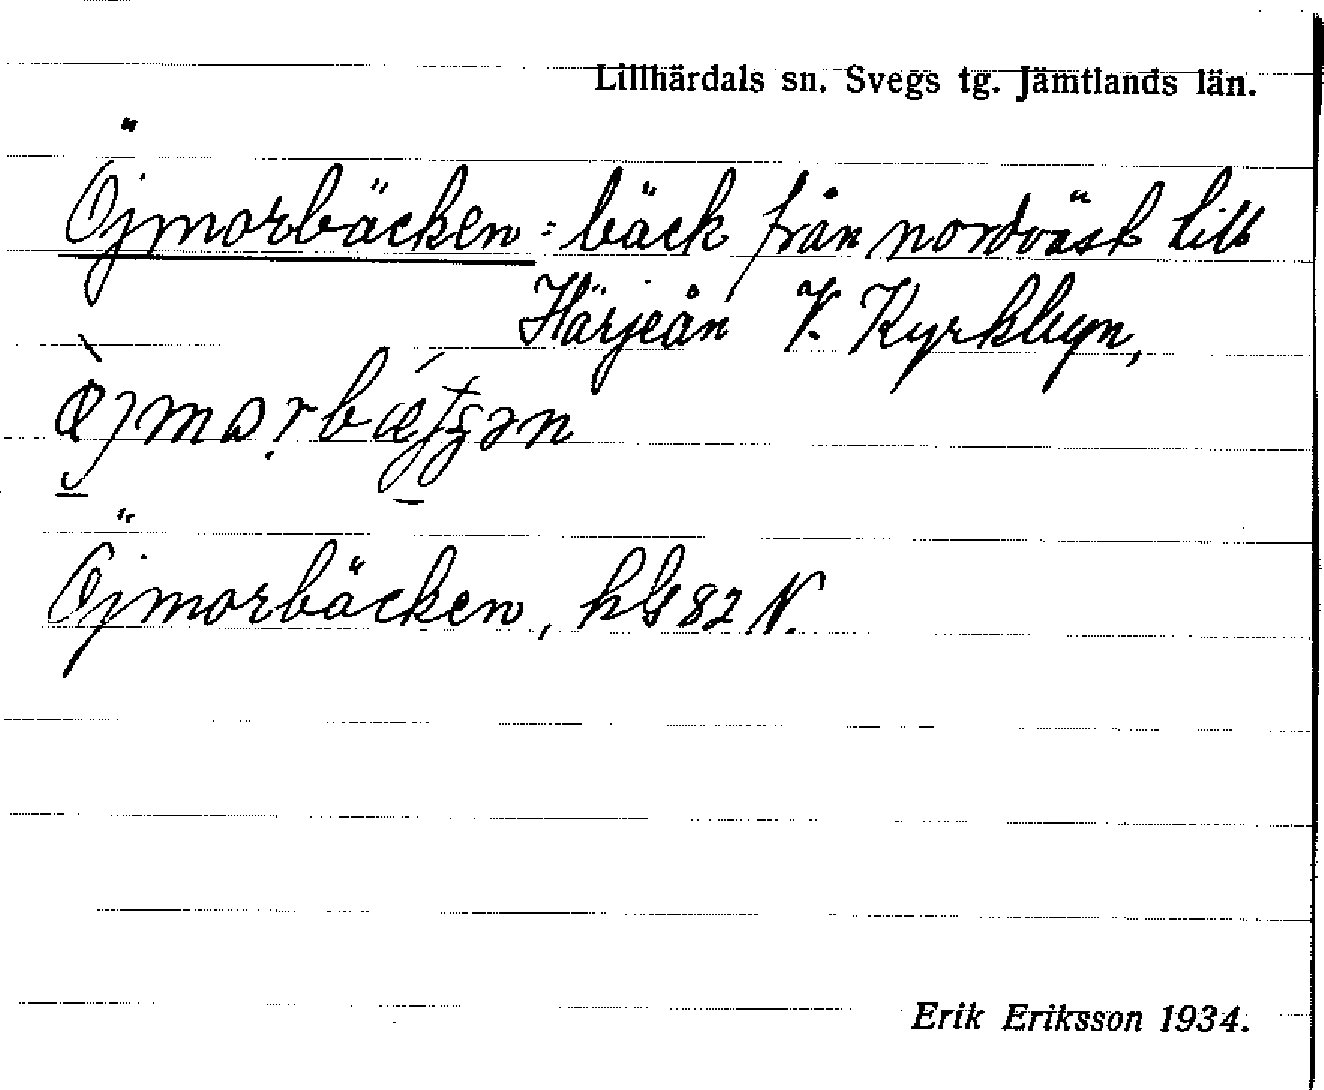 Lillhärdals sn. Svegs tg. Jämtlands län.
Öjmorbäcken: bäck från nordväst till
Härjeån V. Kyrkbyn,
Öjmorbäcken, hG82 N.
Erik Eriksson 1934.